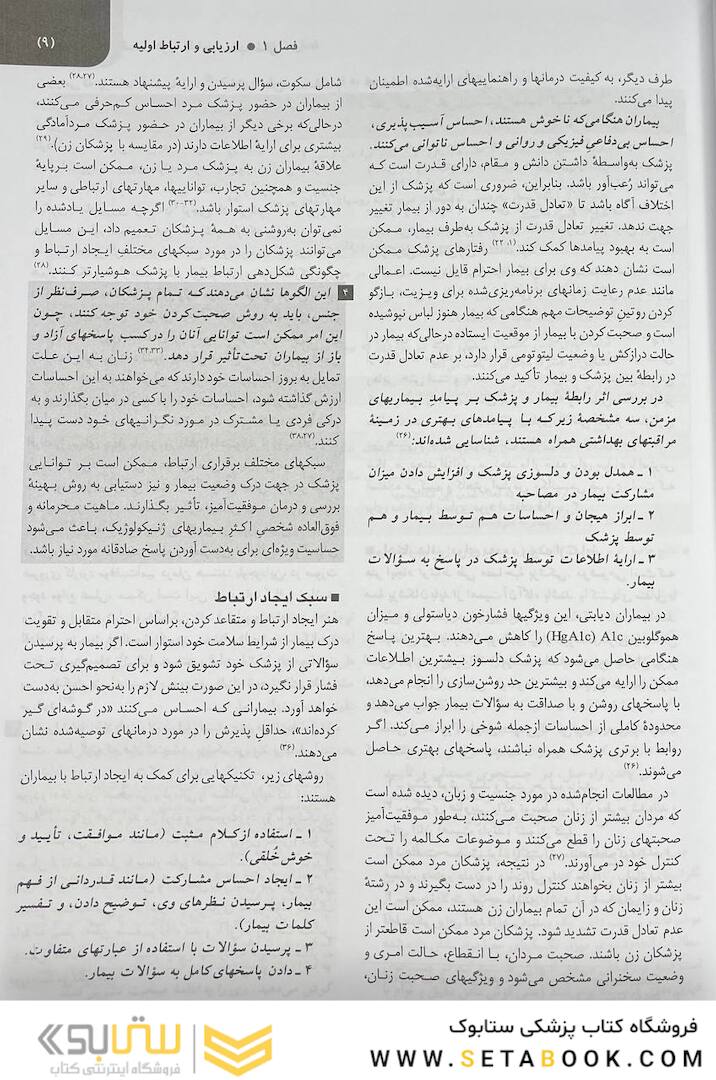 فصل ۱ ● ارزیابی و ارتباط اولیه
(۹)
طرف دیگر، به کیفیت درمانها و راهنماییهای ارایه‌شده اطمینان
پیدا می‌کنند.
بیماران هنگامی‌که ناخوش هستند، احساس آسیب‌پذیری،
احساس بی‌دفاعیِ فیزیکی و روانی و احساس ناتوانی می‌کنند.
پزشک به‌واسطهٔ داشتن دانش و مقام، دارای قدرت است که
می‌تواند رُعب‌آور باشد. بنابراین، ضروری است که پزشک از این
اختلاف آگاه باشد تا «تعادل قدرت» چندان به دور از بیمار تغییر
جهت ندهد. تغییر تعادل قدرت از پزشک به‌طرف بیمار، ممکن
است به بهبود پیامدها کمک کند.(۱، ۲۲) رفتارهای پزشک ممکن
است نشان دهند که وی برای بیمار احترام قایل نیست. اعمالی
مانند عدم رعایت زمانهای برنامه‌ریزی‌شده برای ویزیت، بازگو
کردن روتینِ توضیحات مهم هنگامی‌که بیمار هنوز لباس نپوشیده
است و صحبت‌کردن با بیمار از موقعیت ایستاده درحالی‌که بیمار در
حالت درازکش یا وضعیت لیتوتومی قرار دارد، بر عدم تعادل قدرت
در رابطهٔ بین پزشک و بیمار تأکید می‌کنند.
در بررسی اثر رابطهٔ بیمار و پزشک بر پیامدِ بیماریهای
مزمن، سه مشخصهٔ زیر که با پیامدهای بهتری در زمینهٔ
مراقبتهای بهداشتی همراه هستند، شناسایی شده‌اند:(۲۶)
۱ ـ همدل بودن و دلسوزی پزشک و افزایش دادن میزان
مشارکت بیمار در مصاحبه
۲ ـ ابراز هیجان و احساسات هم توسط بیمار و هم
توسط پزشک
۳ ـ ارایهٔ اطلاعات توسط پزشک در پاسخ به سؤالات
بیمار.
در بیماران دیابتی، این ویژگیها فشارخون دیاستولی و میزان
هموگلوبین A1c (HgA1c) را کاهش می‌دهند. بهترین پاسخ
هنگامی حاصل می‌شود که پزشک دلسوز بیشترین اطلاعات
ممکن را ارایه می‌کند و بیشترین حد روشن‌سازی را انجام می‌دهد،
با پاسخهای روشن و با صداقت به سؤالات بیمار جواب می‌دهد و
محدودهٔ کاملی از احساسات ازجمله شوخی را ابراز می‌کند. اگر
روابط با برتری پزشک همراه نباشند، پاسخهای بهتری حاصل
می‌شوند.(۲۶)
در مطالعات انجام‌شده در مورد جنسیت و زبان، دیده شده است
که مردان بیشتر از زنان صحبت می‌کنند، به‌طور موفقیت‌آمیز
صحبتهای زنان را قطع می‌کنند و موضوعات مکالمه را تحت
کنترل خود در می‌آورند.(۲۷) در نتیجه، پزشکان مرد ممکن است
بیشتر از زنان بخواهند کنترل روند را در دست بگیرند و در رشتهٔ
زنان و زایمان که در آن تمام بیماران زن هستند، ممکن است این
عدم تعادل قدرت تشدید شود. پزشکان مرد ممکن است قاطعتر از
پزشکان زن باشند. صحبت مردان، با انقطاع، حالت امری و
وضعیت سخنرانی مشخص می‌شود و ویژگیهای صحبت زنان،
شامل سکوت، سؤال پرسیدن و ارایهٔ پیشنهاد هستند.(۲۸،۲۷) بعضی
از بیماران در حضور پزشک مرد احساس کم‌حرفی می‌کنند،
درحالی‌که برخی دیگر از بیماران در حضور پزشک مردآمادگی
بیشتری برای ارایهٔ اطلاعات دارند (در مقایسه با پزشکان زن).(۲۹)
علاقهٔ بیماران زن به پزشک مرد یا زن، ممکن است برپایهٔ
جنسیت و همچنین تجارب، تواناییها، مهارتهای ارتباطی و سایر
مهارتهای پزشک استوار باشد.(۳۰-۳۲) اگرچه مسایل یادشده را
نمی‌توان به‌روشنی به همهٔ پزشکان تعمیم داد، این مسایل
می‌توانند پزشکان را در مورد سبکهای مختلفِ ایجاد ارتباط و
چگونگی شکل‌دهی ارتباط بیمار با پزشک هوشیارتر کنند.(۲۸)
۴ این الگوها نشان می‌دهند که تمام پزشکان، صرف‌نظر از
جنس، باید به روش صحبت‌کردن خود توجه کنند، چون
این امر ممکن است توانایی آنان را در کسب پاسخهای آزاد و
باز از بیماران تحت‌تأثیر قرار دهد.(۳۴،۳۳) زنان به این علت
تمایل به بروز احساسات خود دارند که می‌خواهند به این احساسات
ارزش گذاشته شود، احساسات خود را با کسی در میان بگذارند و به
درکی فردی یا مشترک در مورد نگرانیهای خود دست پیدا
کنند.(۳۸،۲۷)
سبکهای مختلف برقراری ارتباط، ممکن است بر توانایی
پزشک در جهت درک وضعیت بیمار و نیز دستیابی به روش بهینهٔ
بررسی و درمان موفقیت‌آمیز، تأثیر بگذارند. ماهیت محرمانه و
فوق‌العاده شخصیِ اکثر بیماریهای ژنیکولوژیک، باعث می‌شود
حساسیت ویژه‌ای برای به‌دست آوردن پاسخ صادقانه مورد نیاز باشد.
■ سبک ایجاد ارتباط
هنر ایجاد ارتباط و متقاعد کردن، براساس احترام متقابل و تقویت
درک بیمار از شرایط سلامت خود استوار است. اگر بیمار به پرسیدن
سؤالاتی از پزشک خود تشویق شود و برای تصمیم‌گیری تحت
فشار قرار نگیرد، در این صورت بینش لازم را به‌نحو احسن به‌دست
خواهد آورد. بیمارانی که احساس می‌کنند «در گوشه‌ای گیر
کرده‌اند»، حداقلِ پذیرش را در مورد درمانهای توصیه‌شده نشان
می‌دهند.(۳۶)
روشهای زیر، تکنیکهایی برای کمک به ایجاد ارتباط با بیماران
هستند:
۱ ـ استفاده از کلام مثبت (مانند موافقت، تأیید و
خوش خُلقی).
۲ ـ ایجاد احساس مشارکت (مانند قدردانی از فهم
بیمار، پرسیدن نظرهای وی، توضیح دادن، و تفسیر
کلمات بیمار).
۳ ـ پرسیدن سؤالات با استفاده از عبارتهای متفاوت.
۴ ـ دادن پاسخهای کامل به سؤالات بیمار.
ستابوک
فروشگاه اینترنتی کتاب
فروشگاه کتاب پزشکی ستابوک
WWW.SETABOOK.COM